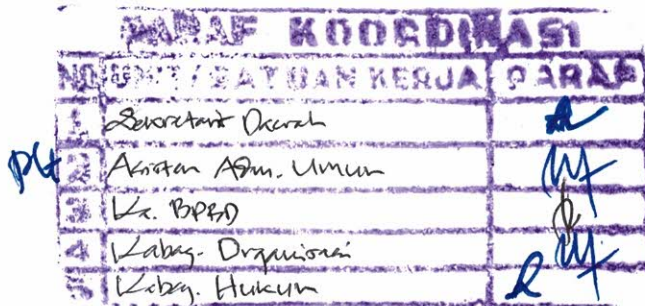 PARAF KOORDINASI
NO UNIT / SATUAN KERJA PARAF
1 Sekretaris Daerah
plt 2 Asisten Adm. Umum
3 Ka. BPBD
4 Kabag. Organisasi
5 Kabag. Hukum